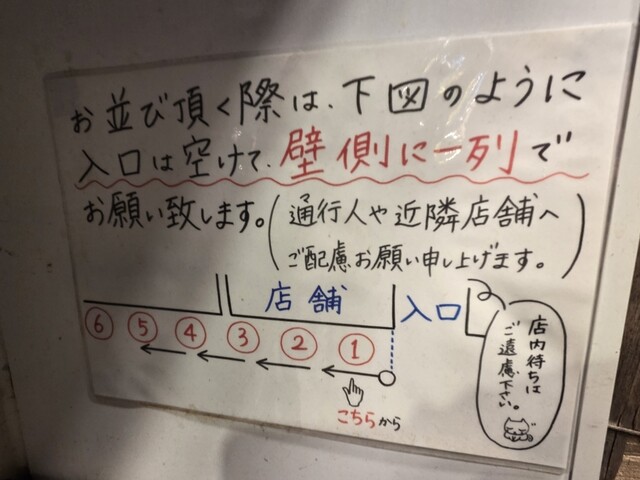 お並び頂く際は、下図のように
入口は空けて、壁側に一列で
お願い致します。
(通行人や近隣店舗へ
ご配慮お願い申し上げます。)
店舗
入口
⑥ ⑤ ④ ③ ② ①
こちらから
店内待ちは
ご遠慮下さい。